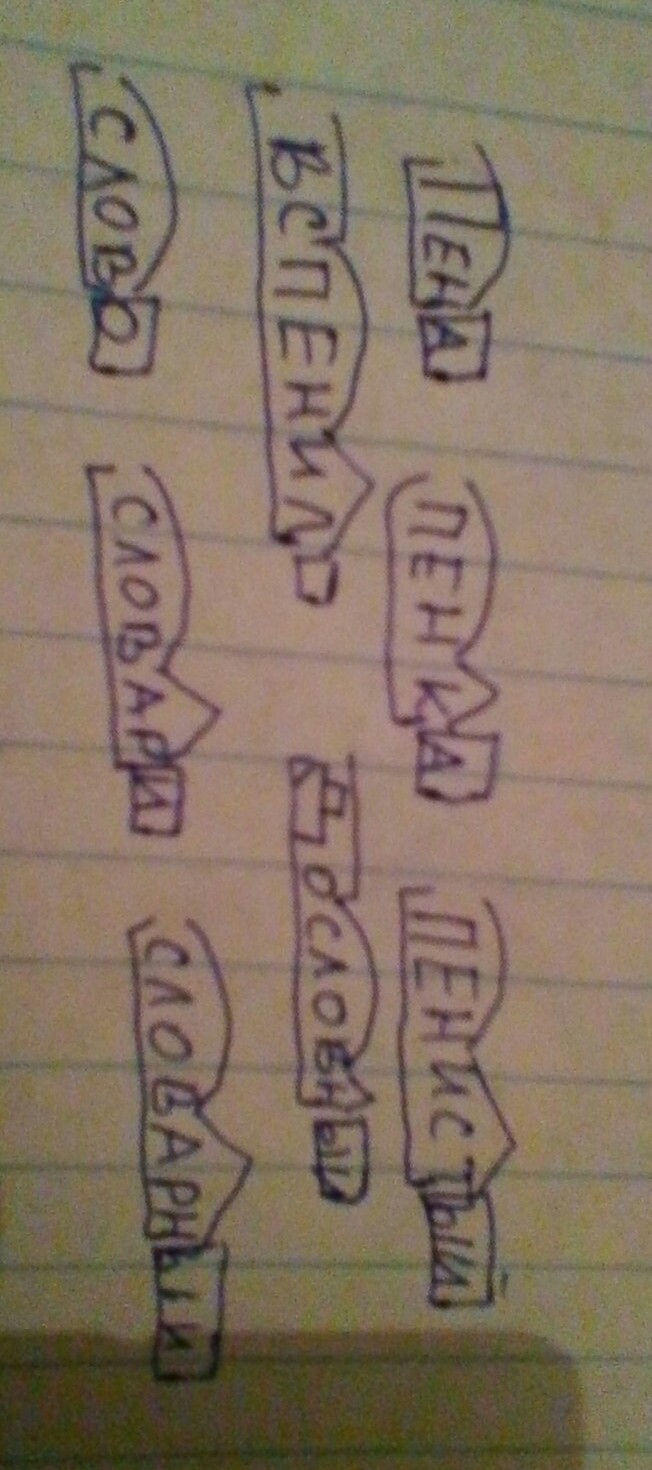 ПЕНА ПЕНКА ПЕНИСТЫЙ
ВСПЕНИЛ ДОСЛОВНЫЙ
СЛОВО СЛОВАРИ СЛОВАРНЫЙ